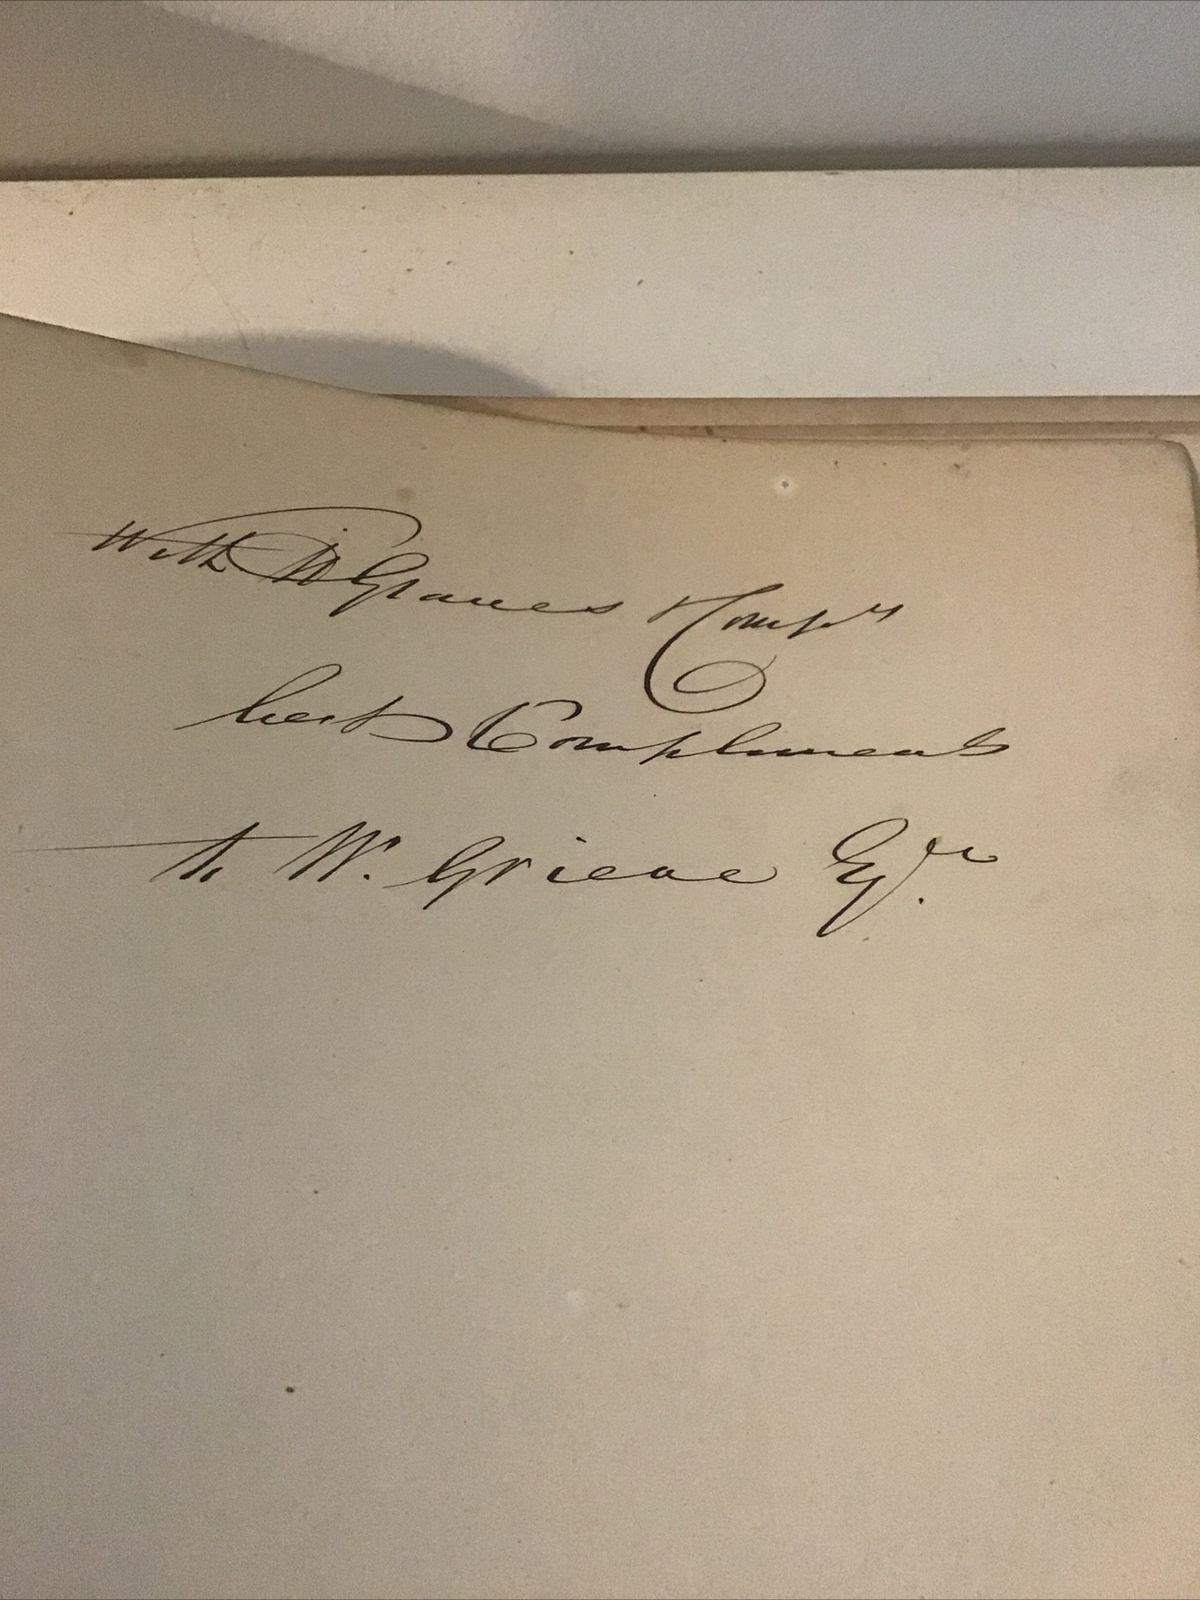 With Graves
best Compliments
to W. Grieve Esq.re